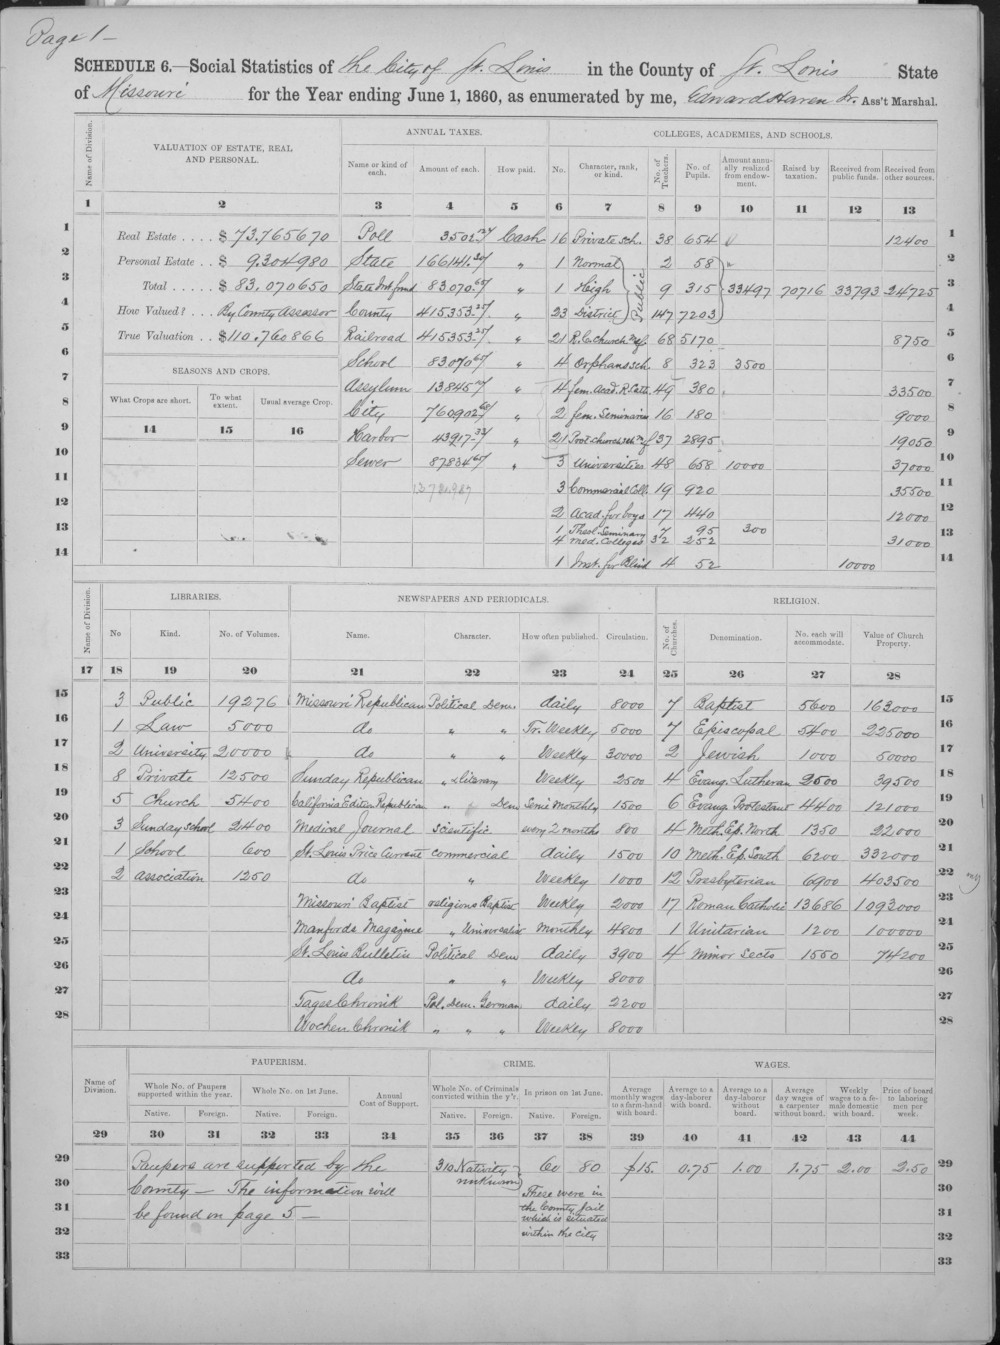 Page 1-
SCHEDULE 6.—Social Statistics of the City of St. Louis in the County of St. Louis State
of Missouri for the Year ending June 1, 1860, as enumerated by me, Edward Haren Jr. Ass't Marshal.
Name of Division.
VALUATION OF ESTATE, REAL AND PERSONAL.
ANNUAL TAXES.
COLLEGES, ACADEMIES, AND SCHOOLS.
Name or kind of each. Amount of each. How paid. No. Character, rank, or kind. No. of Teachers. No. of Pupils. Amount annually realized from endowment. Raised by taxation. Received from public funds. Received from other sources.
1 2 3 4 5 6 7 8 9 10 11 12 13
1 Real Estate . . . . $ 73.765670 Poll 3502. Cash 16 Private sch. 38 654 12400 1
2 Personal Estate . . $ 9.304980 State 166141.30 " 1 Normal 2 58 2
3 Total . . . . . $ 83.070650 State Int. fund 83070.65 " 1 High Public 9 315 33497 70716 33793 24725 3
4 How Valued? . . By County Assessor County 415353.25 " 23 District 147 7203 4
5 True Valuation . . $110.760866 Railroad 415353.25 " 21 R.C. Church 68 5170 8750 5
6 School 83070.65 " 4 Orphans sch. 8 323 3500 6
7 SEASONS AND CROPS. Assylum 13845. " 4 fem. Acad. R. Cath. 49 380 33500 7
8 What Crops are short. To what extent. Usual average Crop. City 760902.68 " 2 fem. Seminaries 16 180 9000 8
9 14 15 16 Harbor 43917.32 " 21 Prot. church sch. 37 2895 19050 9
10 Sewer 87834.65 " 3 Universities 48 658 10000 37000 10
11 3 Commercial Coll. 19 920 35500 11
12 2 Acad. for boys 17 440 12000 12
13 1 Theol. Seminary 7 95 300 13
4 Med. Colleges 32 252 31000
14 1 Inst. for Blind 4 52 10000 14
Name of Division.
LIBRARIES. NEWSPAPERS AND PERIODICALS. RELIGION.
No Kind. No. of Volumes. Name. Character. How often published. Circulation. No. of Churches. Denomination. No. each will accommodate. Value of Church Property.
17 18 19 20 21 22 23 24 25 26 27 28
15 3 Public 19276 Missouri Republican Political Dem. daily 8000 7 Baptist 5600 163000 15
16 1 Law 5000 do " " Tr. Weekly 5000 7 Episcopal 5400 225000 16
17 2 University 20000 do Weekly 30000 2 Jewish 1000 50000 17
18 8 Private 12500 Sunday Republican " & literary Weekly 2500 4 Evang. Lutheran 2500 39500 18
19 5 Church 5400 California Editer Republican " Dem Semi Monthly 1500 6 Evang. Protestant 4400 121000 19
20 3 Sunday school 2400 Medical Journal scientific every 2 months 800 4 Meth. Ep. North 1350 22000 20
21 1 School 600 St. Louis Price Current commercial daily 1500 10 Meth. Ep. South 6200 332000 21
22 2 association 1250 do " Weekly 1000 12 Presbyterian 6900 403500 22
23 Missouri Baptist religious Baptist Weekly 2000 17 Roman Catholic 13686 1093000 23
24 Manfords Magazine " Universalist Monthly 4800 1 Unitarian 1200 100000 24
25 St. Louis Bulletin Political Dem daily 3900 4 Minor Sects 1550 74200 25
26 do " " Weekly 8000 26
27 Tages Chronik Pol. Dem. German daily 2200 27
28 Wochen Chronik " " " Weekly 8000 28
Name of Division.
PAUPERISM. CRIME. WAGES.
Whole No. of Paupers supported within the year. Whole No. on 1st June. Annual Cost of Support. Whole No. of Criminals convicted within the y'r. In prison on 1st June. Average monthly wages to a farm-hand with board. Average to a day-laborer with board. Average to a day-laborer without board. Average day wages of a carpenter without board. Weekly wages to a female domestic with board. Price of board to laboring men per week.
Native. Foreign. Native. Foreign. Native. Foreign. Native. Foreign.
29 30 31 32 33 34 35 36 37 38 39 40 41 42 43 44
29 Paupers are supported by the 310 Nativity 60 80 $15. 0.75 1.00 1.75 2.00 2.50 29
30 County — The information will unknown These were in 30
31 be found on page 5 — the County jail 31
which is situated
32 within the city 32
33 33